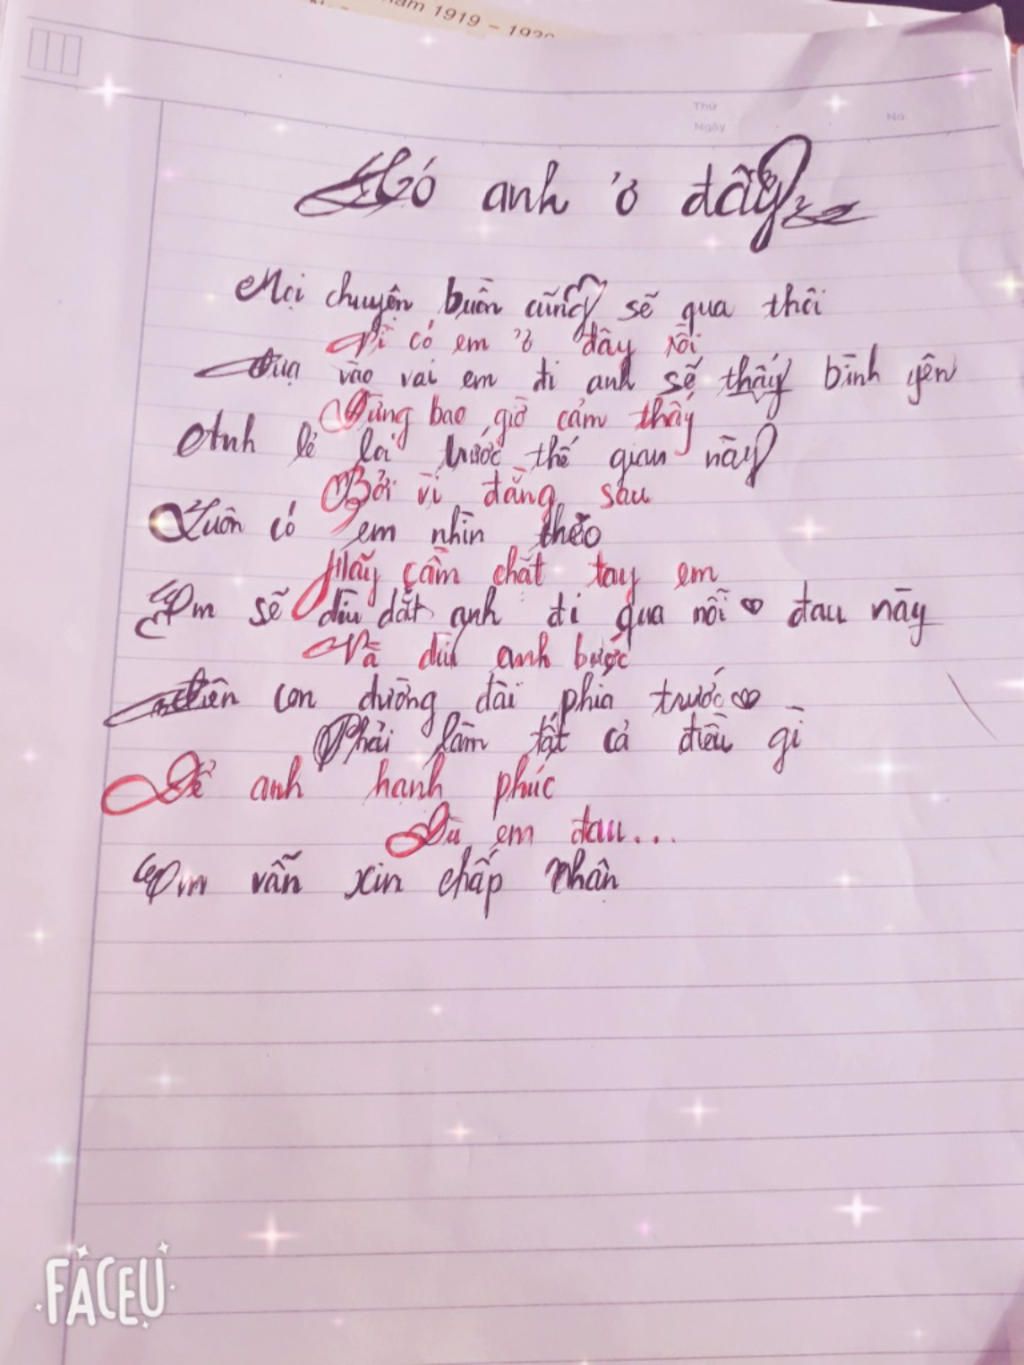 năm 1919 - 1930
Thứ
Ngày
No
Có anh ở đây
Mọi chuyện buồn cũng sẽ qua thôi
Vì có em ở đây rồi
Tựa vào vai em đi anh sẽ thấy bình yên
Đừng bao giờ cảm thấy
Anh lẻ loi trước thế gian này
Bởi vì đằng sau
Luôn có em nhìn theo
Hãy cầm chặt tay em
Em sẽ dìu dắt anh đi qua nỗi đau này
Và dìu anh bước
trên con đường dài phía trước
Phải làm tất cả điều gì
Để anh hạnh phúc
Dù em đau...
Em vẫn xin chấp nhận
FACEU